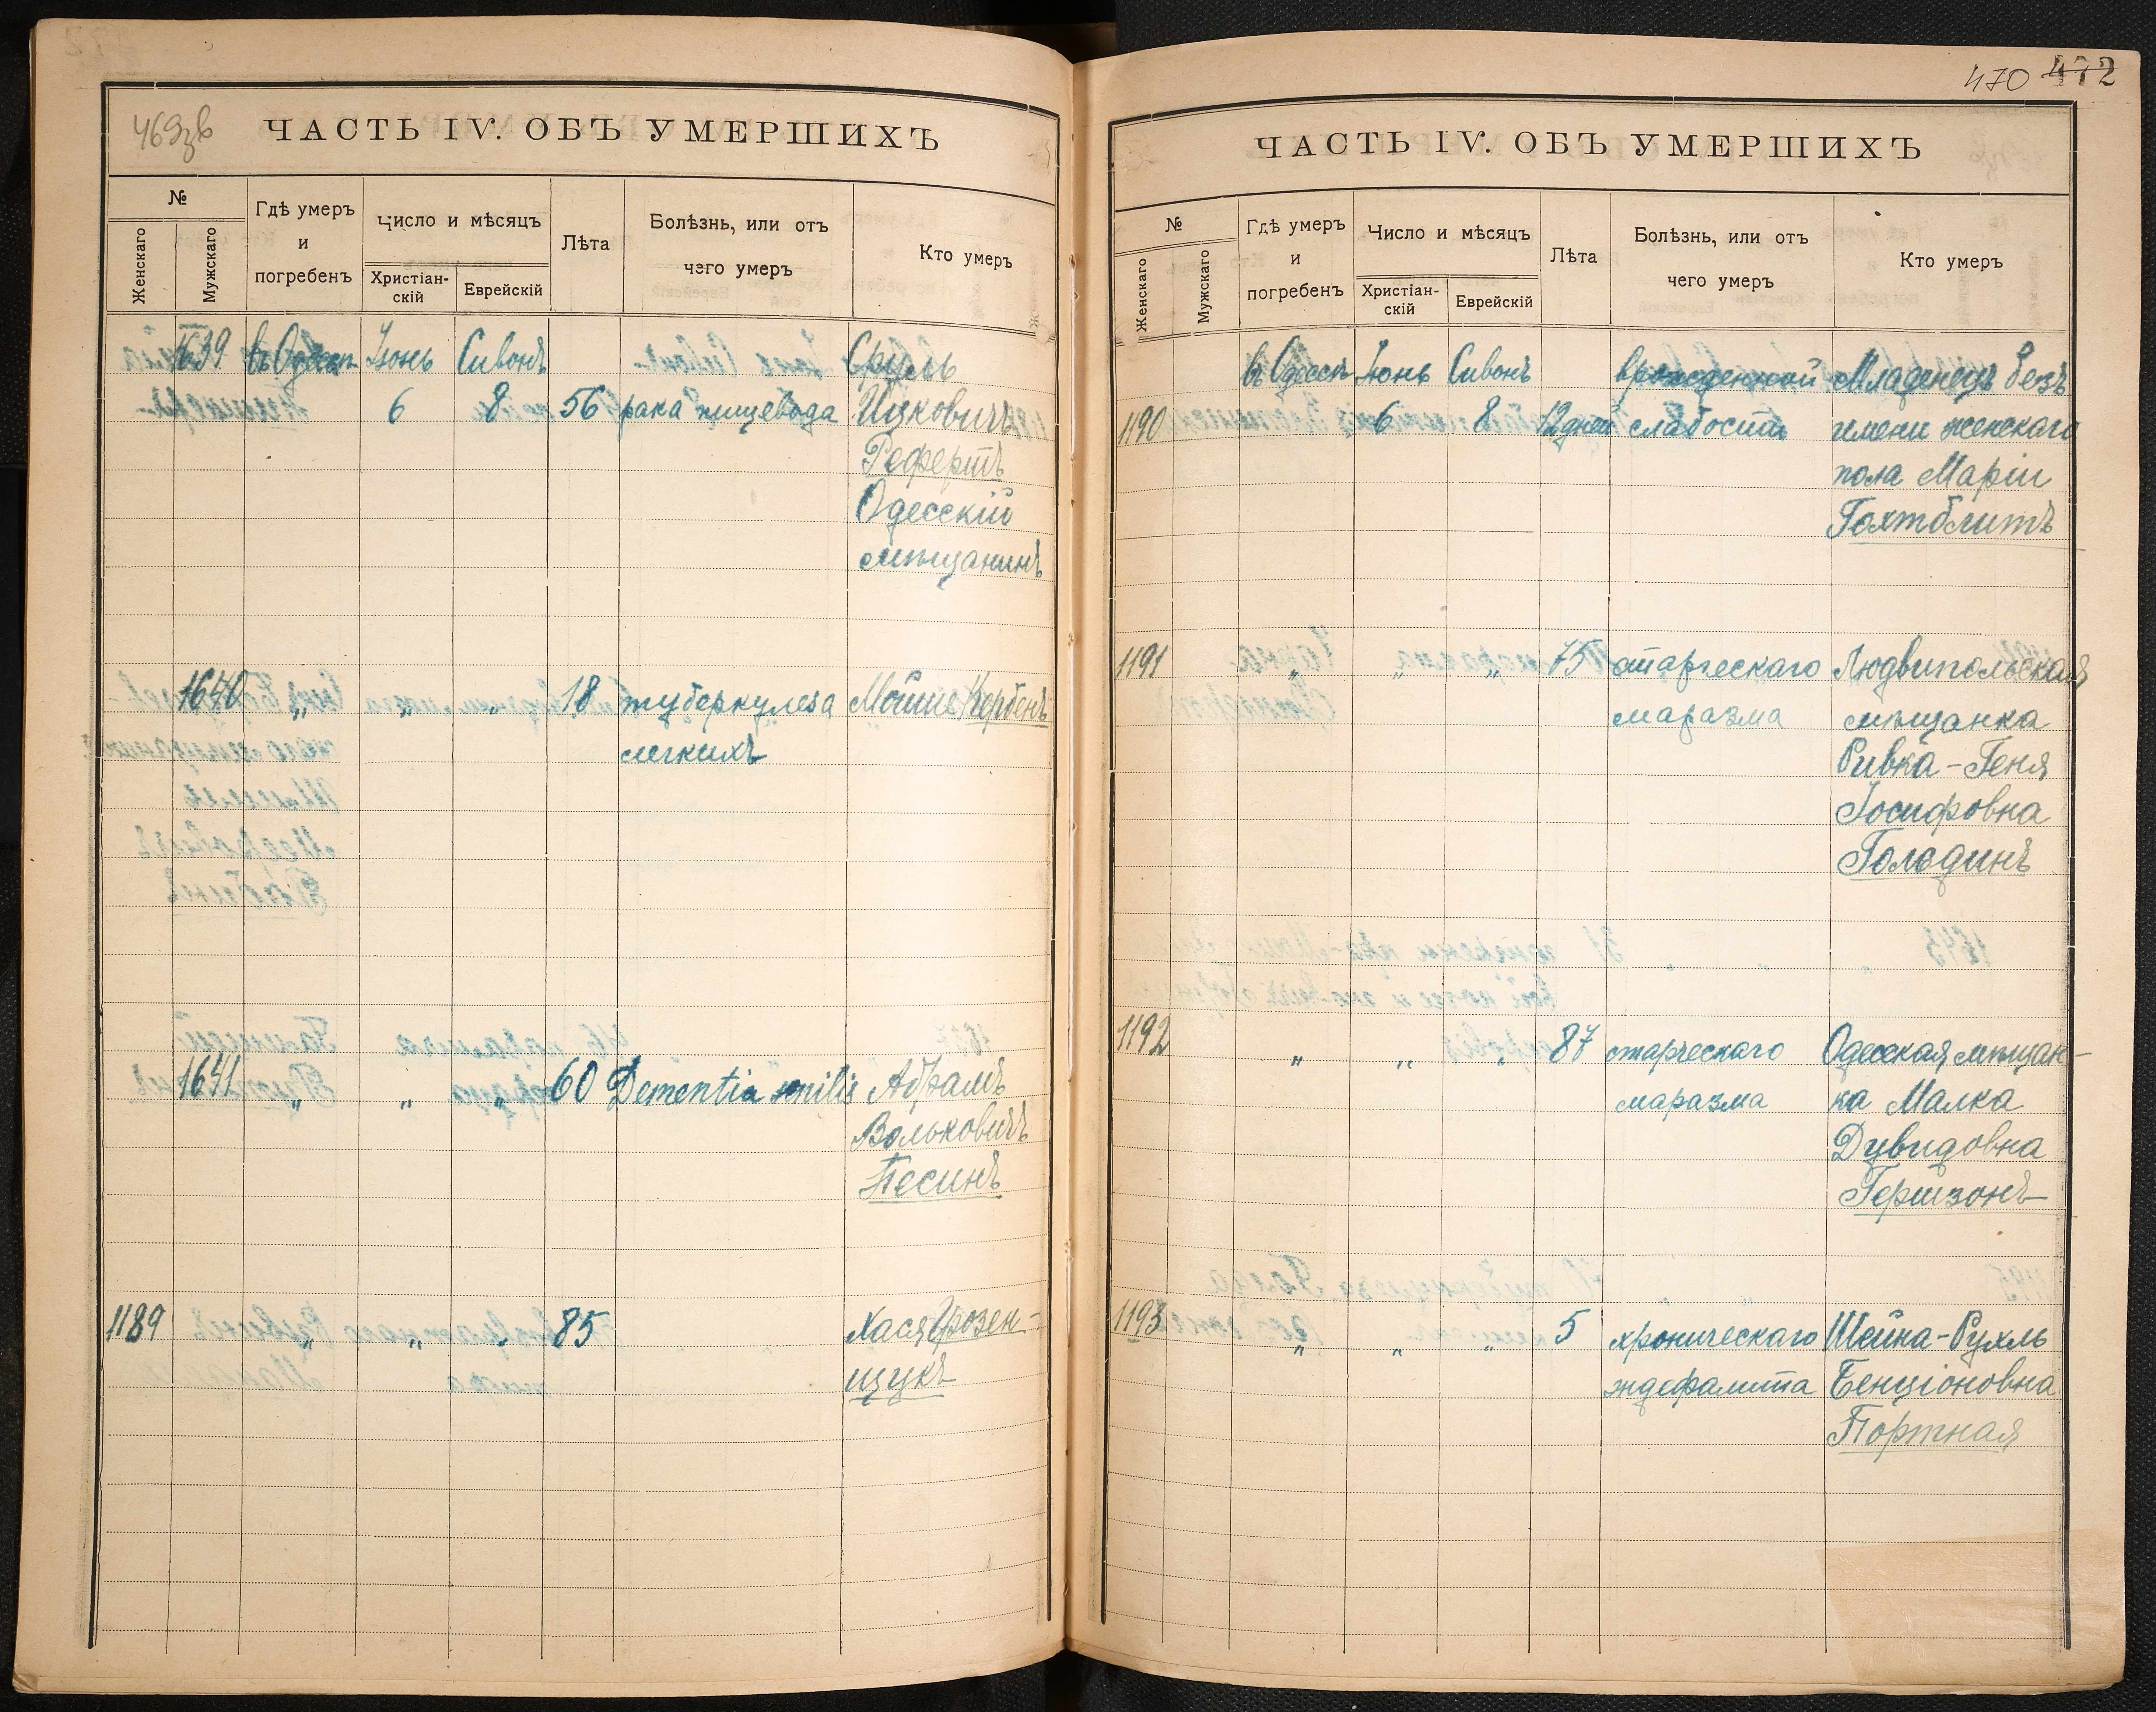 469 зв
ЧАСТЬ IV. ОБЪ УМЕРШИХЪ
№
Женскаго
Мужскаго
Гдѣ умеръ
и
погребенъ
Число и мѣсяцъ
Христіан-
скій
Еврейскій
Лѣта
Болѣзнь, или отъ
чего умеръ
Кто умеръ
1639 въ Одессѣ Іюнь Сивонъ Сруль
6 8 56 рака пищевода Ицковичъ
Рефертъ
Одесскій
мѣщанинъ
1640 „ „ „ 18 туберкулеза Мойше Кербенъ
легкихъ
1641 „ „ „ 60 Dementia senilis Абрамъ
Вольковичъ
Песинъ
1189 „ „ „ 85 Хася Грозен-
щукъ
470 472
ЧАСТЬ IV. ОБЪ УМЕРШИХЪ
№
Женскаго
Мужскаго
Гдѣ умеръ
и
погребенъ
Число и мѣсяцъ
Христіан-
скій
Еврейскій
Лѣта
Болѣзнь, или отъ
чего умеръ
Кто умеръ
въ Одессѣ Іюнь Сивонъ врожденной Младенецъ безъ
1190 6 8 12 дней слабости имени женскаго
пола Маріи
Гохтблитъ
1191 „ „ „ 75 старческаго Людвипольская
маразма мѣщанка
Ривка-Геня
Іосифовна
Голодинъ
1192 „ „ „ 87 старческаго Одесская мѣщан-
маразма ка Малка
Дувидовна
Гершзонъ
1193 „ „ „ 5 хроническаго Шейна-Рухль
эндефалита Бенціоновна
Портная